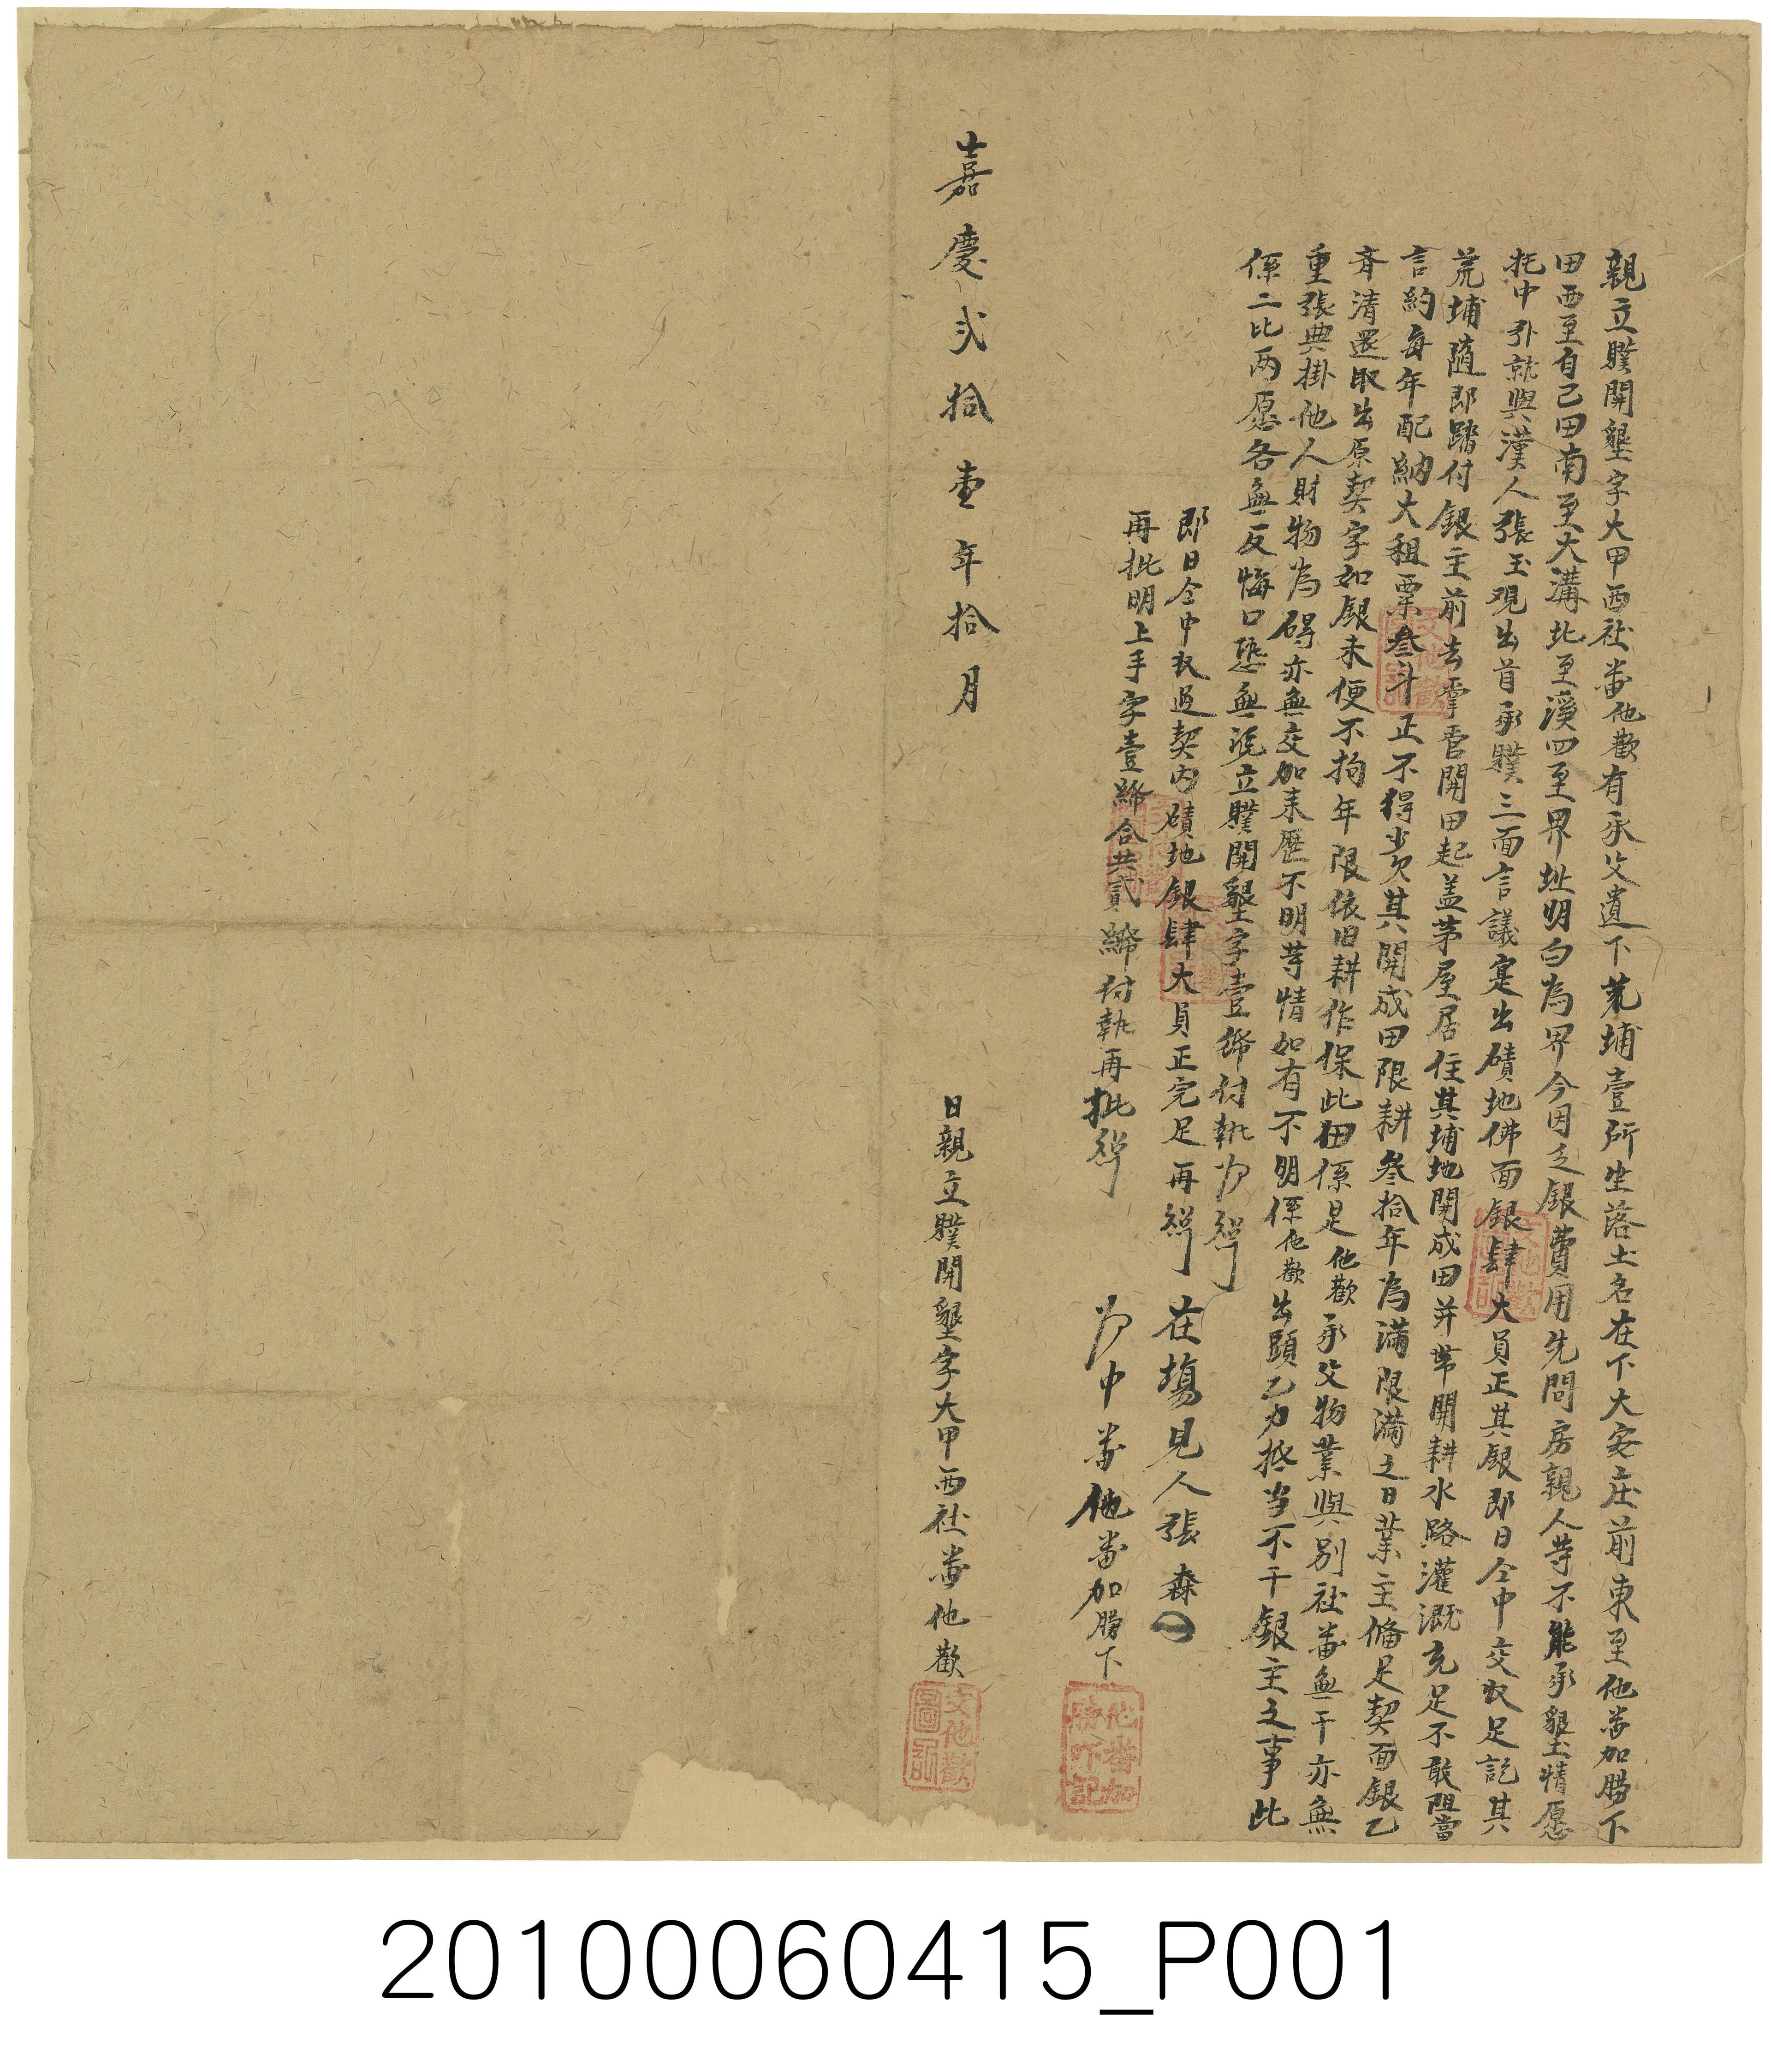 親立贌開墾字大甲西社番他歡有承父遺下荒埔壹所坐落土名在下大安庄前東至他番加勝下
田西至自己田南至大溝北至溪四至界址明白為界今因乏銀費用先問房親人等不能承墾情愿
托中引就與漢人張玉观出首承贌三面言議寔出磧地佛面銀肆大員正其銀即日仝中交收足訖其
荒埔隨即踏付銀主前去掌管開田起盖茅屋居住其埔地開成田并帶開耕水路灌溉充足不敢阻當
言約每年配納大租粟叁斗正不得少欠其開成田限耕叁拾年為滿限滿之日業主俻足契面銀乙
斉清還取出原契字如銀未便不拘年限依旧耕作保此田係是他歡承父物業與別社番無干亦無
重張典掛他人財物為碍亦無交加来歷不明等情如有不明係他歡出頭乙力抵当不干銀主之事此
係二比两愿各無反悔口恐無凴立贌開墾字壹紙付執為炤
即日仝中收過契內磧地銀肆大員正完足再炤
再批明上手字壹紙合共貳紙付執再批炤
在塲見人張森
為中番他番加勝下
他番加勝下記
嘉慶弍拾壹年拾月
日親立贌開墾字大甲西社番他歡
文他歡圖記
20100060415_P001